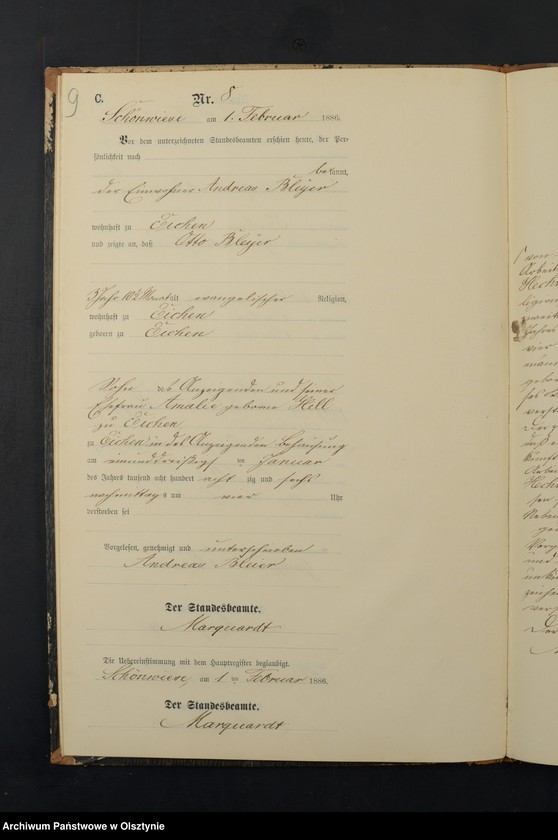 9
C. Nr. 8.
Schönwiese am 1. Februar 1886.
Vor dem unterzeichneten Standesbeamten erschien heute, der Per-
sönlichkeit nach
bekannt,
der Einwohner Andreas Bleyer
wohnhaft zu Eichen
und zeigte an, daß Otto Bleyer
3 Jahr 10½ Monat alt evangelischer Religion,
wohnhaft zu Eichen
geboren zu Eichen
Sohn des Anzeigenden und seiner
Ehefrau Amalie geborne Hell
zu Eichen
zu Eichen in des Anzeigenden Behausung
am einunddreißigsten Januar
des Jahres tausend acht hundert achtzig und sechs
nachmittags um vier Uhr
verstorben sei
Vorgelesen, genehmigt und unterschrieben
Andreas Bleier
Der Standesbeamte.
Marquardt
Die Uebereinstimmung mit dem Hauptregister beglaubigt.
Schönwiese, am 1ten Februar 1886.
Der Standesbeamte.
Marquardt
Archiwum Państwowe w Olsztynie